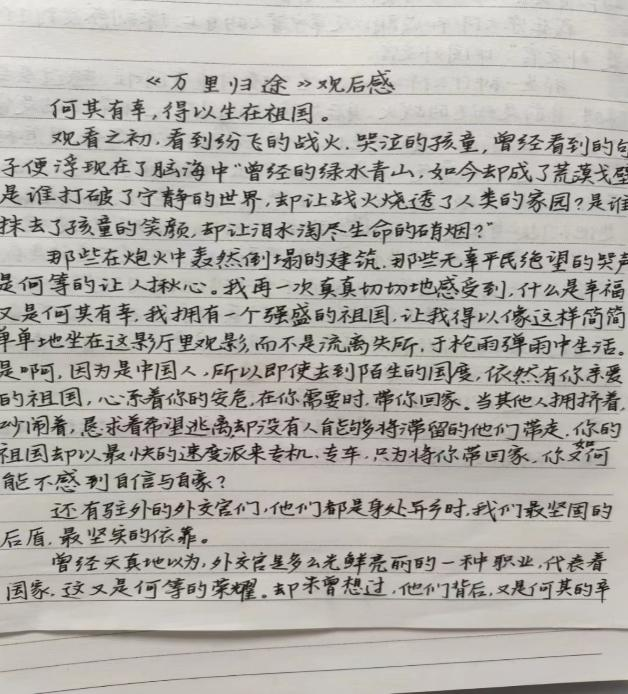 《万里归途》观后感
何其有幸，得以生在祖国。
观看之初，看到纷飞的战火，哭泣的孩童，曾经看到的句
子便浮现在了脑海中“曾经的绿水青山，如今却成了荒漠戈壁
是谁打破了宁静的世界，却让战火烧透了人类的家园？是谁
抹去了孩童的笑颜，却让泪水淘尽生命的硝烟？”
那些在炮火中轰然倒塌的建筑，那些无辜平民绝望的哭声
是何等的让人揪心。我再一次真真切切地感受到，什么是幸福
又是何其有幸，我拥有一个强盛的祖国，让我得以像这样简简
单单地坐在这影厅里观影，而不是流离失所，于枪雨弹雨中生活。
是啊，因为是中国人，所以即使去到陌生的国度，依然有你亲爱
的祖国，心系着你的安危，在你需要时，带你回家。当其他人拥挤着，
吵闹着，恳求着希望逃离却没有人能够将滞留的他们带走，你的
祖国却以最快的速度派来专机、专车，只为将你带回家，你又如何
能不感到自信与自豪？
还有驻外的外交官们，他们都是身处异乡时，我们最坚固的
后盾，最坚实的依靠。
曾经天真地以为，外交官是多么光鲜亮丽的一种职业，代表着
国家，这又是何等的荣耀。却未曾想过，他们背后，又是何其的辛